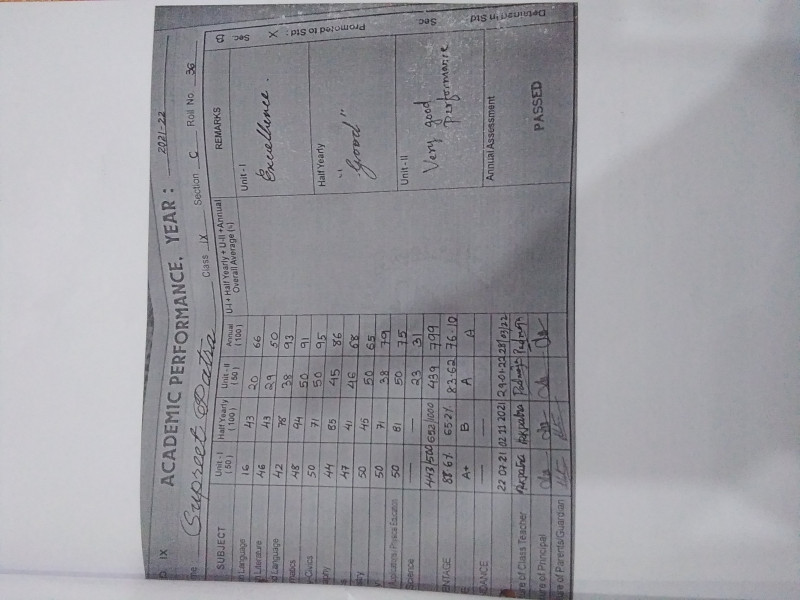 IX
ACADEMIC PERFORMANCE, YEAR : 2021-22
Supreet Patra Class IX Section C Roll No. 36
SUBJECT Unit - I (50) Half Yearly (100) Unit-II (50) Annual (100) U-I + Half Yearly + U-II + Annual Overall Average (%) REMARKS
Language 16 43 20 66
Literature 46 43 29 50
Language 42 78 38 93
48 94 50 91
Civics 50 71 50 95
44 85 45 86
47 41 46 68
50 45 50 65
50 71 38 79
Physical Education 50 81 50 75
Science — — 23 31
443/500 652/1000 439 799
88.6% 65.2% 83.62 76.10
A+ B A A
— —
22 07 21 02 11 2021 29-01-22 28/03/22
of Class Teacher
of Principal
of Parents/Guardian
Unit - I
Excellence.
Half Yearly
"Good"
Unit - II
Very good
performance
Annual Assessment
PASSED
Promoted to Std : X Sec
Detained in Std Sec